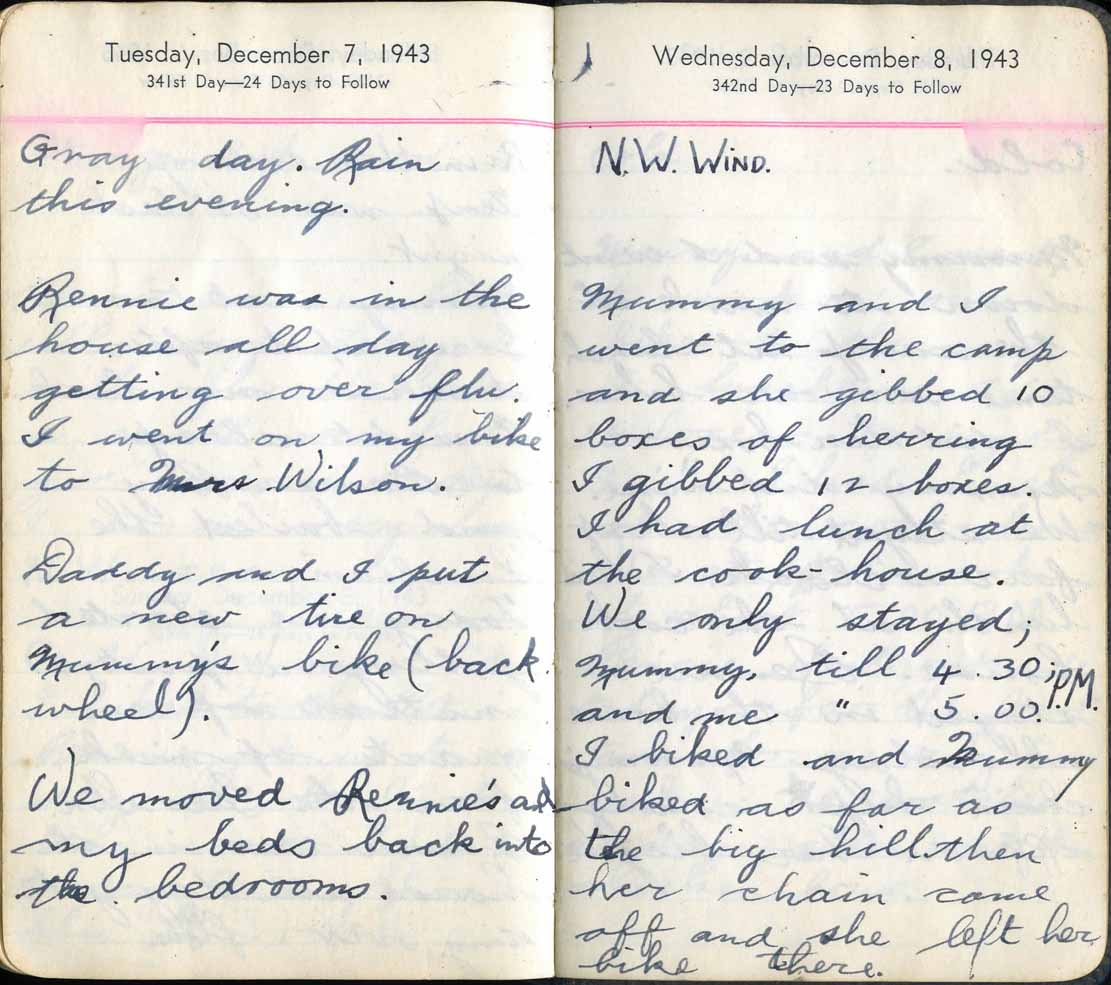 Tuesday, December 7, 1943
341st Day—24 Days to Follow
Gray day. Rain
this evening.
Rennie was in the
house all day
getting over flu.
I went on my bike
to Mrs Wilson.
Daddy and I put
a new tire on
Mummy's bike (back
wheel).
We moved Rennie's and
my beds back into
the bedrooms.
Wednesday, December 8, 1943
342nd Day—23 Days to Follow
N.W. WIND.
Mummy and I
went to the camp
and she gibbed 10
boxes of herring
I gibbed 12 boxes.
I had lunch at
the cook-house.
We only stayed;
Mummy, till 4.30;
P.M.
and me " 5.00
I biked and Mummy
biked as far as
the big hill.then
her chain come
off and she left her
bike there.